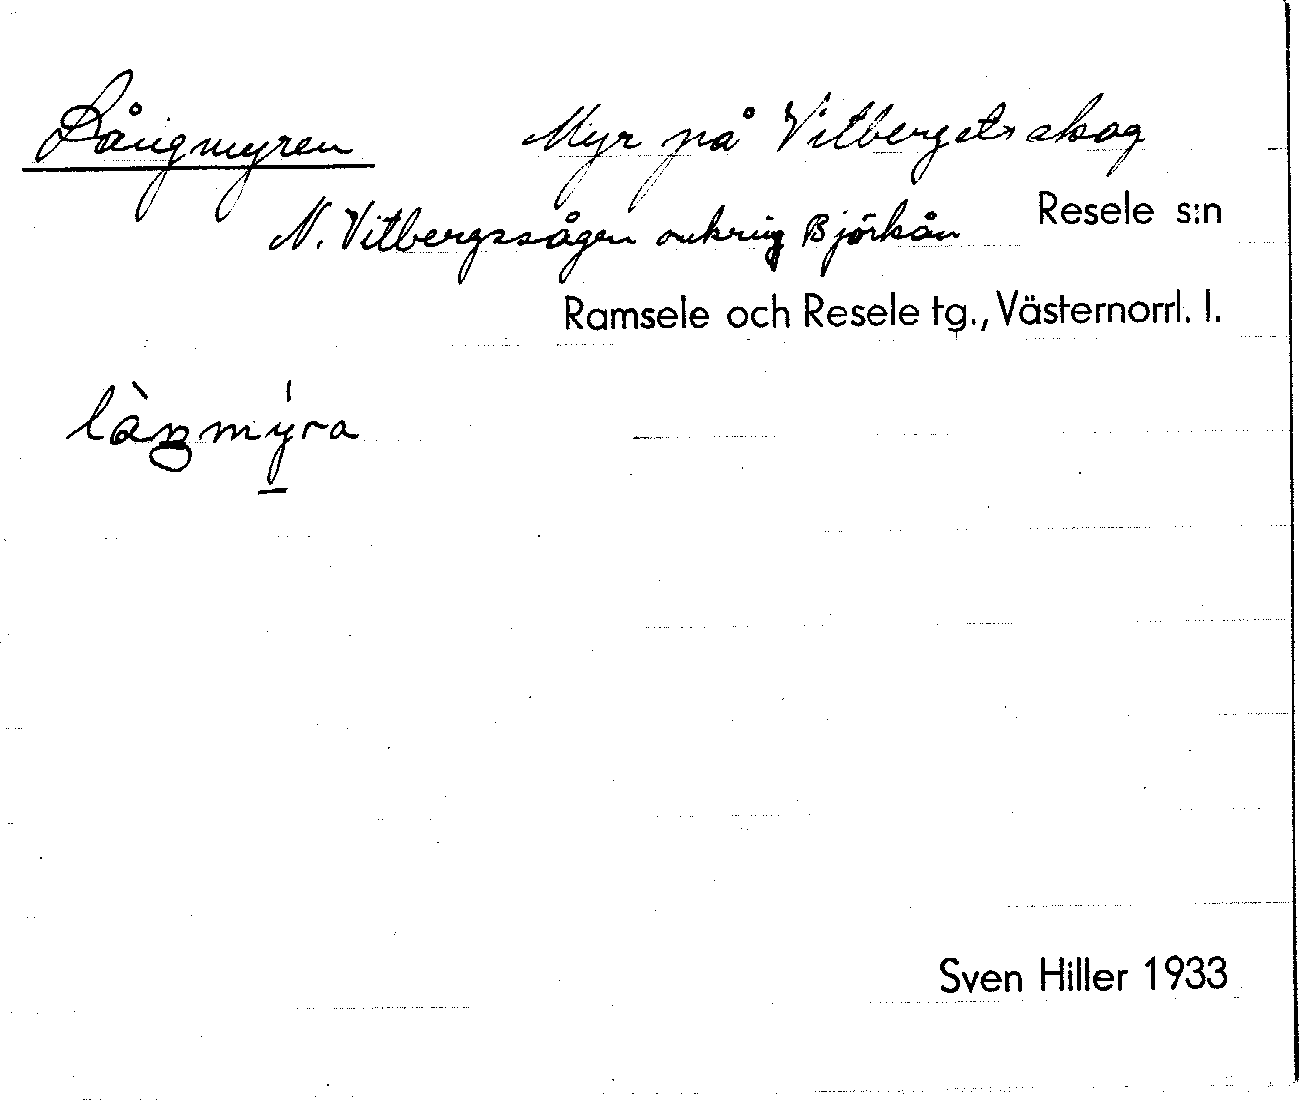 Långmyren Myr på Vitbergets skog
N. Vitbergssågen omkring Björkån Resele s:n
Ramsele och Resele tg., Västernorrl. l.
Sven Hiller 1933